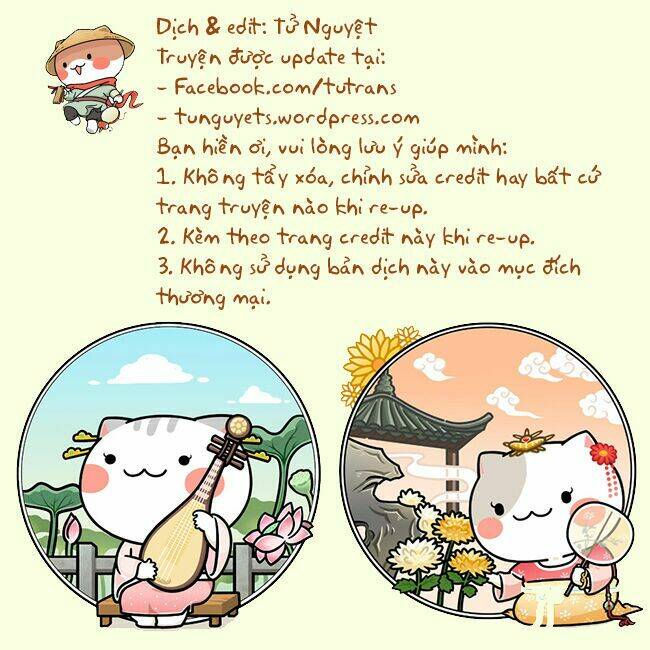 Dịch & edit: Tử Nguyệt
Truyện được update tại:
- Facebook.com/tutrans
- tunguyets.wordpress.com
Bạn hiền ơi, vui lòng lưu ý giúp mình:
1. Không tẩy xóa, chỉnh sửa credit hay bất cứ
trang truyện nào khi re-up.
2. Kèm theo trang credit này khi re-up.
3. Không sử dụng bản dịch này vào mục đích
thương mại.